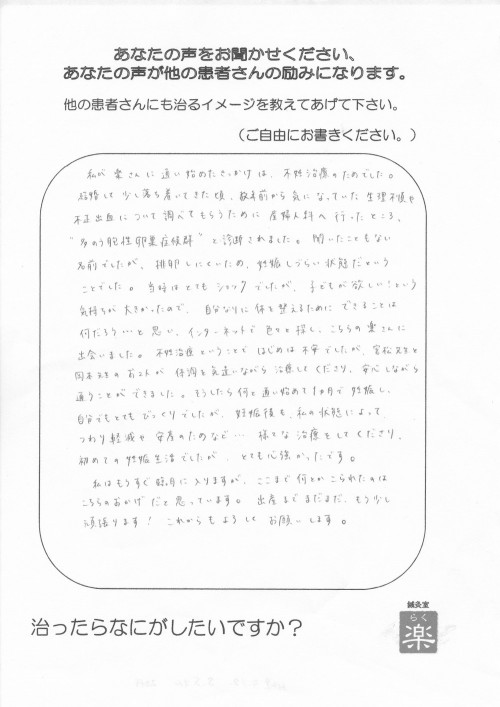 あなたの声をお聞かせください、
あなたの声が他の患者さんの励みになります。
他の患者さんにも治るイメージを教えてあげて下さい。
（ご自由にお書きください。）
私が 楽さんに 通い始めたきっかけは、不妊治療のためでした。
結婚して 少し落ち着いてきた頃、数年前から 気になっていた 生理不順や
不正出血について 調べてもらうために 産婦人科へ 行ったところ、
"多のう胞性卵巣症候群" と診断されました。聞いたこともない
名前でしたが、排卵しにくいため、妊娠しづらい 状態だという
ことでした。当時は とても ショックでしたが、子どもが欲しい！という
気持ちが 大きかったので、自分なりに 体を整えるために できることは
何だろう…と思い、インターネットで 色々と探し、こちらの楽さんに
出会いました。不妊治療ということで はじめは不安でしたが、先生と
先生の お二人が 体調を気遣いながら 治療してくださり、安心しながら
通うことが できました。そうしたら何と通い始めて ヶ月で妊娠し、
自分でもとても びっくりでしたが、妊娠後も、私の状態によって、
つわり軽減や 安産のためなど… 様々な 治療をしてくださり、
初めての 妊娠生活でしたが、とても心強かったです。
私はもうすぐ臨月に入りますが、ここまで何とか こられたのは
こちらのおかげだと思っています。出産まで まだまだ、もう少し
頑張ります！ これからも よろしく お願いします。
鍼灸室
らく
楽
治ったらなにがしたいですか？